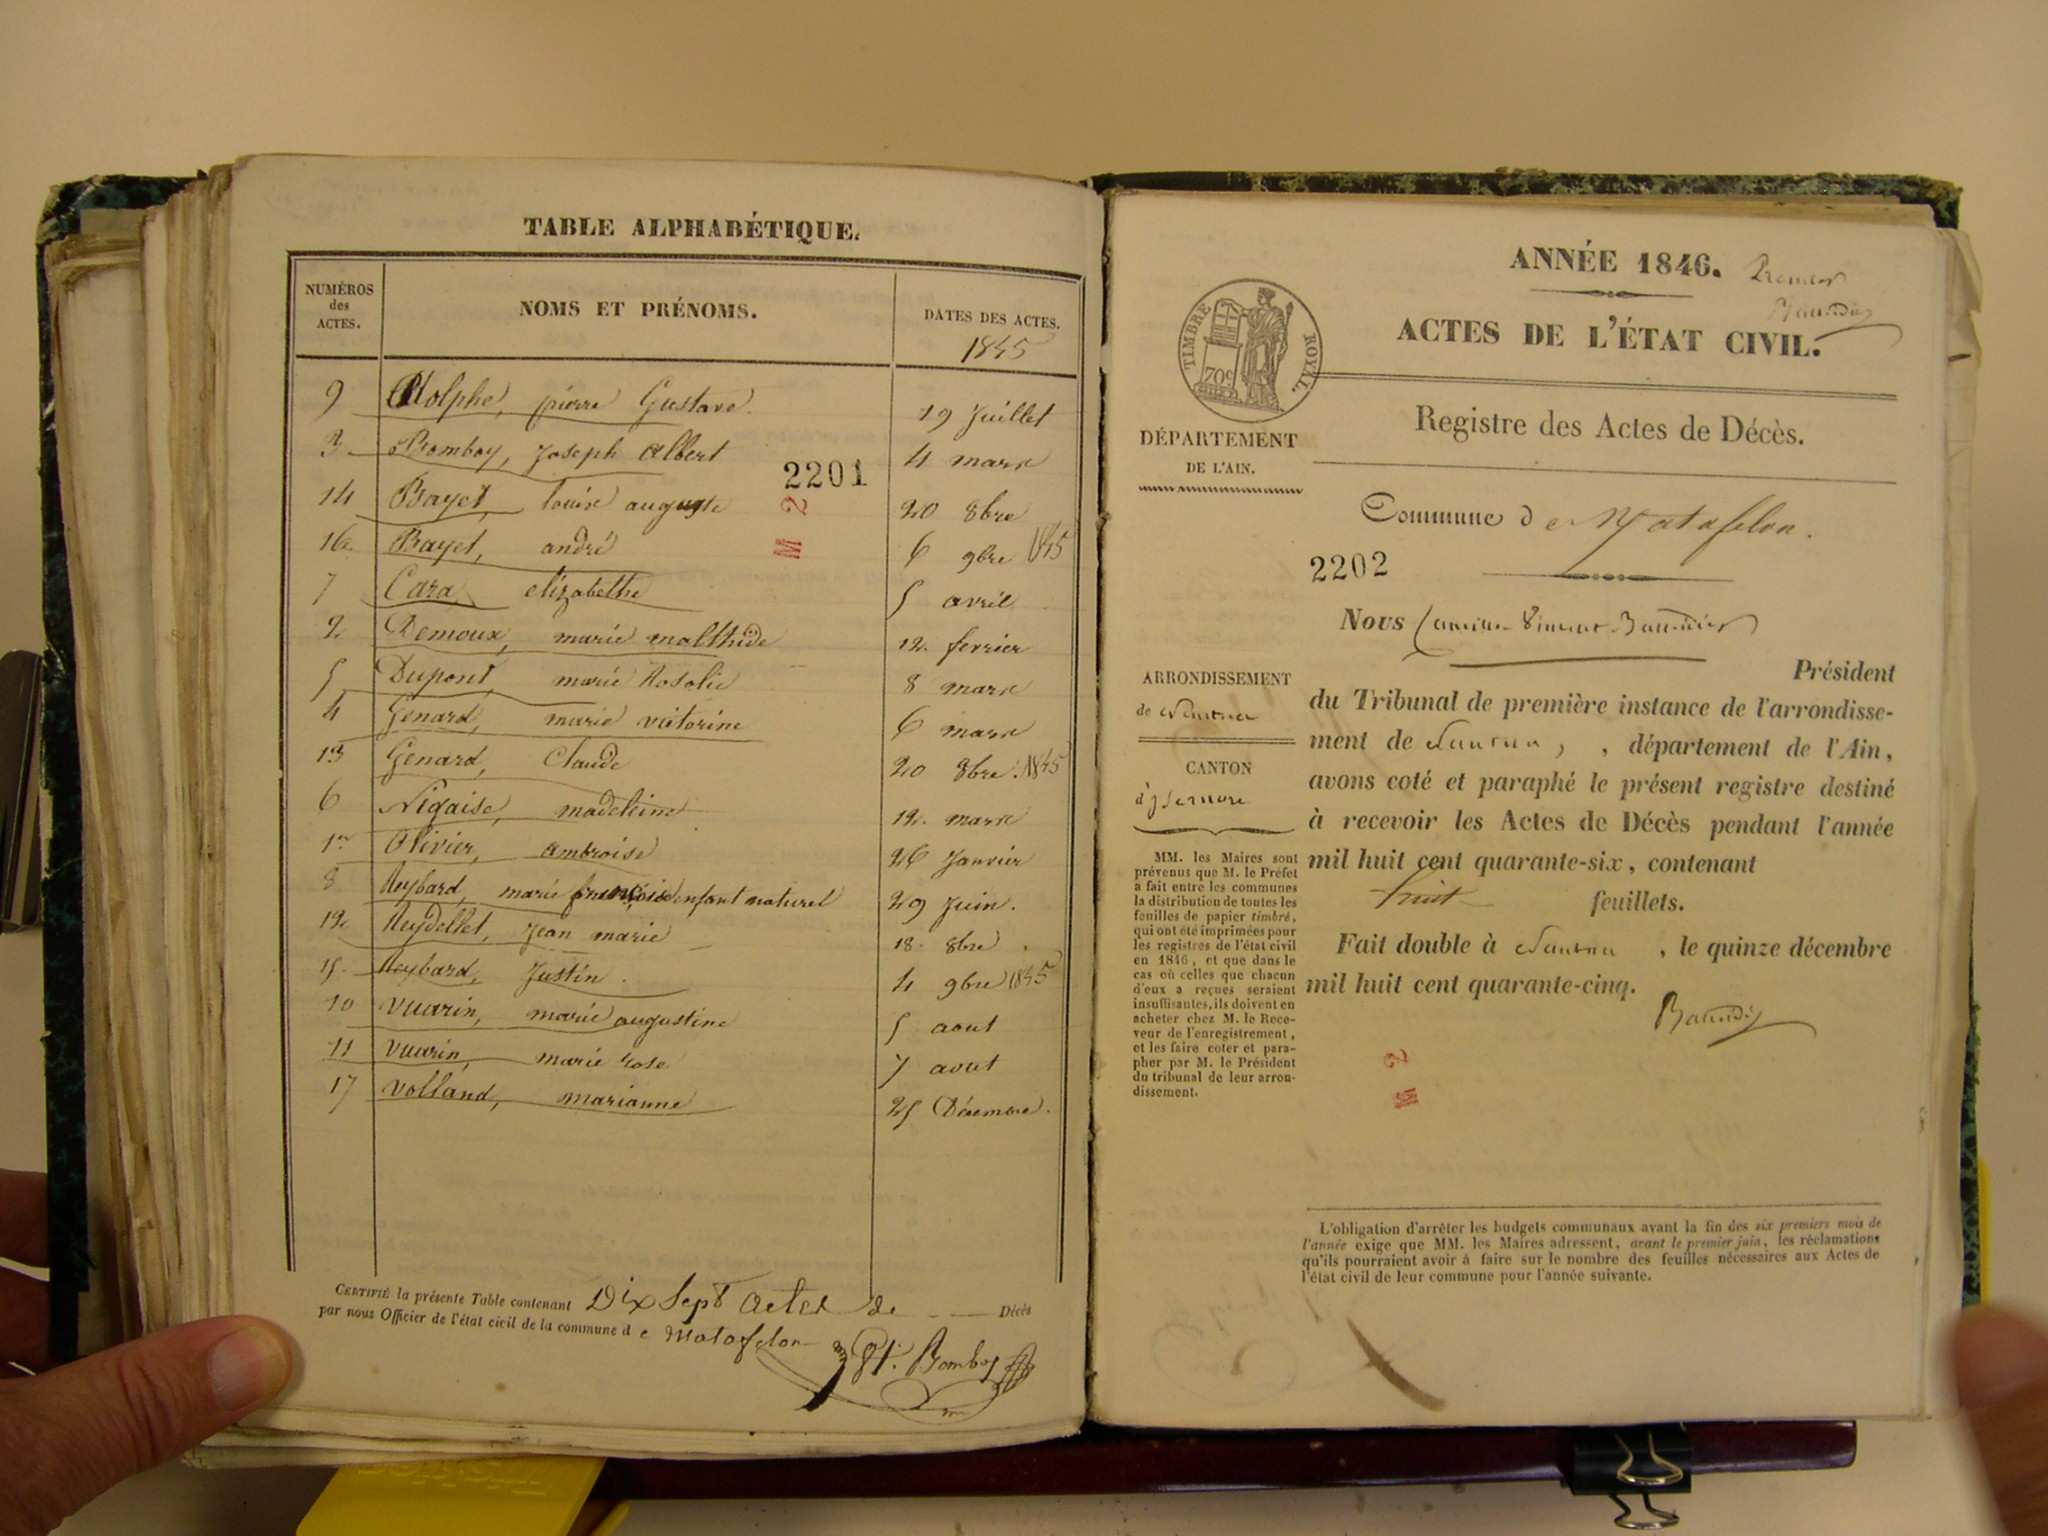 TABLE ALPHABÉTIQUE.
NUMÉROS des ACTES. NOMS ET PRÉNOMS. DATES DES ACTES.
1845
9 Adolphe, pierre Gustave. 19 Juillet
3 Bomboy, Joseph albert 4 mars
2201
14 Bayet, louise auguste 20 8bre
M 2
16 Bayet, andré 6 9bre 1845
7 Cara, elizabethe 5 avril
2 Demoux, marie malthide 12 fevrier
5 Dupont, marie Rosolie 8 mars
4 Genard, marie victorine 6 mars
13 Genard, Claude 20 8bre 1845
6 Nigaise, madeleine 12 mars
1er Olivier, ambroise 26 Janvier
8 Reybard, marie françoise enfant naturel 29 Juin.
12 Reydellet, Jean marie 18 8bre
15 Reybard, Justin. 4 9bre 1845
10 Vuarin, marie augustine 5 aout
11 Vuarin, marie rose 7 aout
17 Volland, marianne 25 Décembre.
CERTIFIÉ la présente Table contenant Dix Sept actes de Décès
par nous Officier de l'état civil de la commune de Matafelon
Bomboy
ANNÉE 1846. Premier
Baudin
ACTES DE L'ÉTAT CIVIL.
TIMBRE ROYAL.
70c
Registre des Actes de Décès.
DÉPARTEMENT
DE L'AIN.
Commune de Matafelon.
2202
Nous
Président
ARRONDISSEMENT
de Nantua
CANTON
d'Isernore
MM. les Maires sont
prévenus que M. le Préfet
a fait entre les communes
la distribution de toutes les
feuilles de papier timbré,
qui ont été imprimées pour
les registres de l'état civil
en 1846, et que dans le
cas où celles que chacun
d'eux a reçues seraient
insuffisantes, ils doivent en
acheter chez M. le Rece-
veur de l'enregistrement,
et les faire coter et para-
pher par M. le Président
du tribunal de leur arron-
dissement.
du Tribunal de première instance de l'arrondisse-
ment de Nantua, , département de l'Ain,
avons coté et paraphé le présent registre destiné
à recevoir les Actes de Décès pendant l'année
mil huit cent quarante-six, contenant
huit feuillets.
Fait double à Nantua , le quinze décembre
mil huit cent quarante-cinq.
M 2
L'obligation d'arrêter les budgets communaux avant la fin des six premiers mois de
l'année exige que MM. les Maires adressent, avant le premier juin, les réclamations
qu'ils pourraient avoir à faire sur le nombre des feuilles nécessaires aux Actes de
l'état civil de leur commune pour l'année suivante.